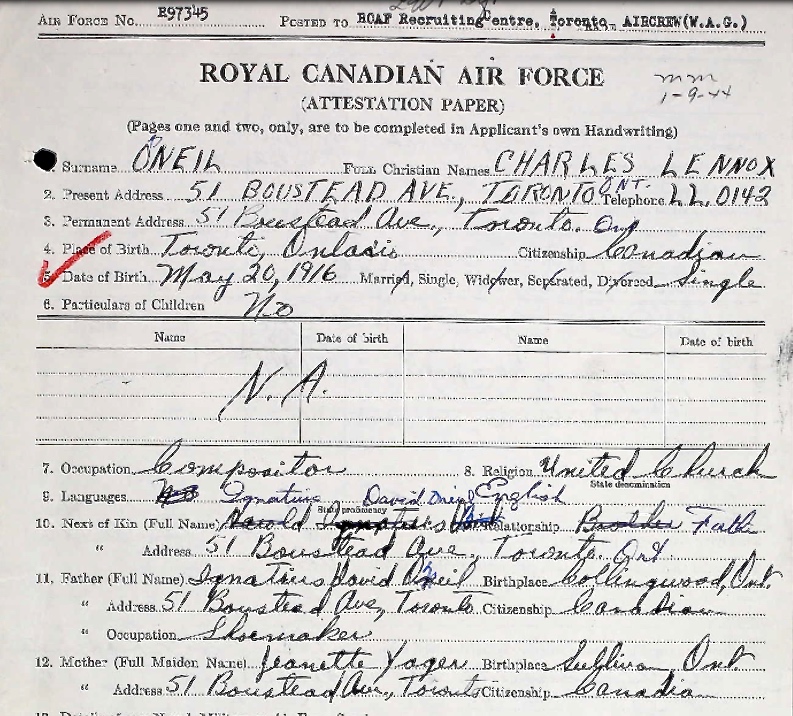 AIR FORCE No. R97345 POSTED TO RCAF Recruiting Centre, Toronto- AIRCREW(W.A.G.)
ROYAL CANADIAN AIR FORCE
mm
1-9-44
(ATTESTATION PAPER)
(Pages one and two, only, are to be completed in Applicant's own Handwriting)
Surname ONEIL FULL Christian Names CHARLES LENNOX
2. Present Address 51 BOUSTEAD AVE., TORONTO ONT. Telephone LL. 0142
3. Permanent Address 51 Boustead Ave., Toronto. Ont
4. Place of Birth Toronto, Ontario Citizenship Canadian
5. Date of Birth May 20, 1916 Married, Single, Widower, Separated, Divorced Single
6. Particulars of Children No
Name Date of birth Name Date of birth
N. A.
7. Occupation Compositor 8. Religion United Church
State denomination
9. Languages Ignatius David Oneil English
State proficiency
10. Next of Kin (Full Name) Harold Ignatius Relationship Brother Father
" Address 51 Boustead Ave., Toronto. Ont
11. Father (Full Name) Ignatius David Oneil Birthplace Collingwood, Ont.
" Address 51 Boustead Ave, Toronto Citizenship Canadian
" Occupation Shoemaker
12. Mother (Full Maiden Name) Jeanette Yager Birthplace Sullivan, Ont
" Address 51 Boustead Ave., Toronto Citizenship Canadian